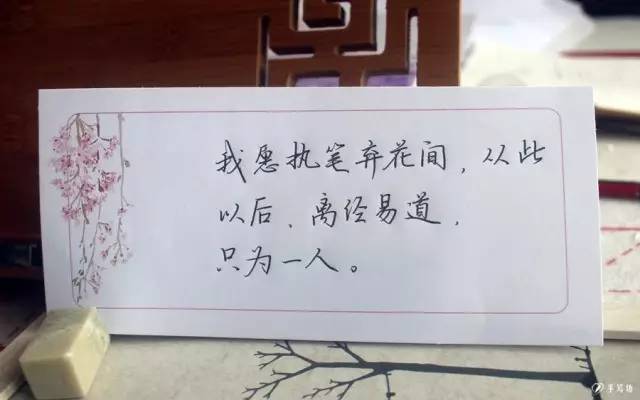 我愿执笔弃花间，从此
以后、离经易道，
只为一人。
手写坊